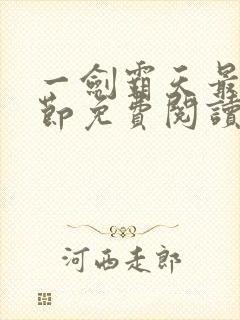 一劍霸天最
節免費閱讀
河西走郎